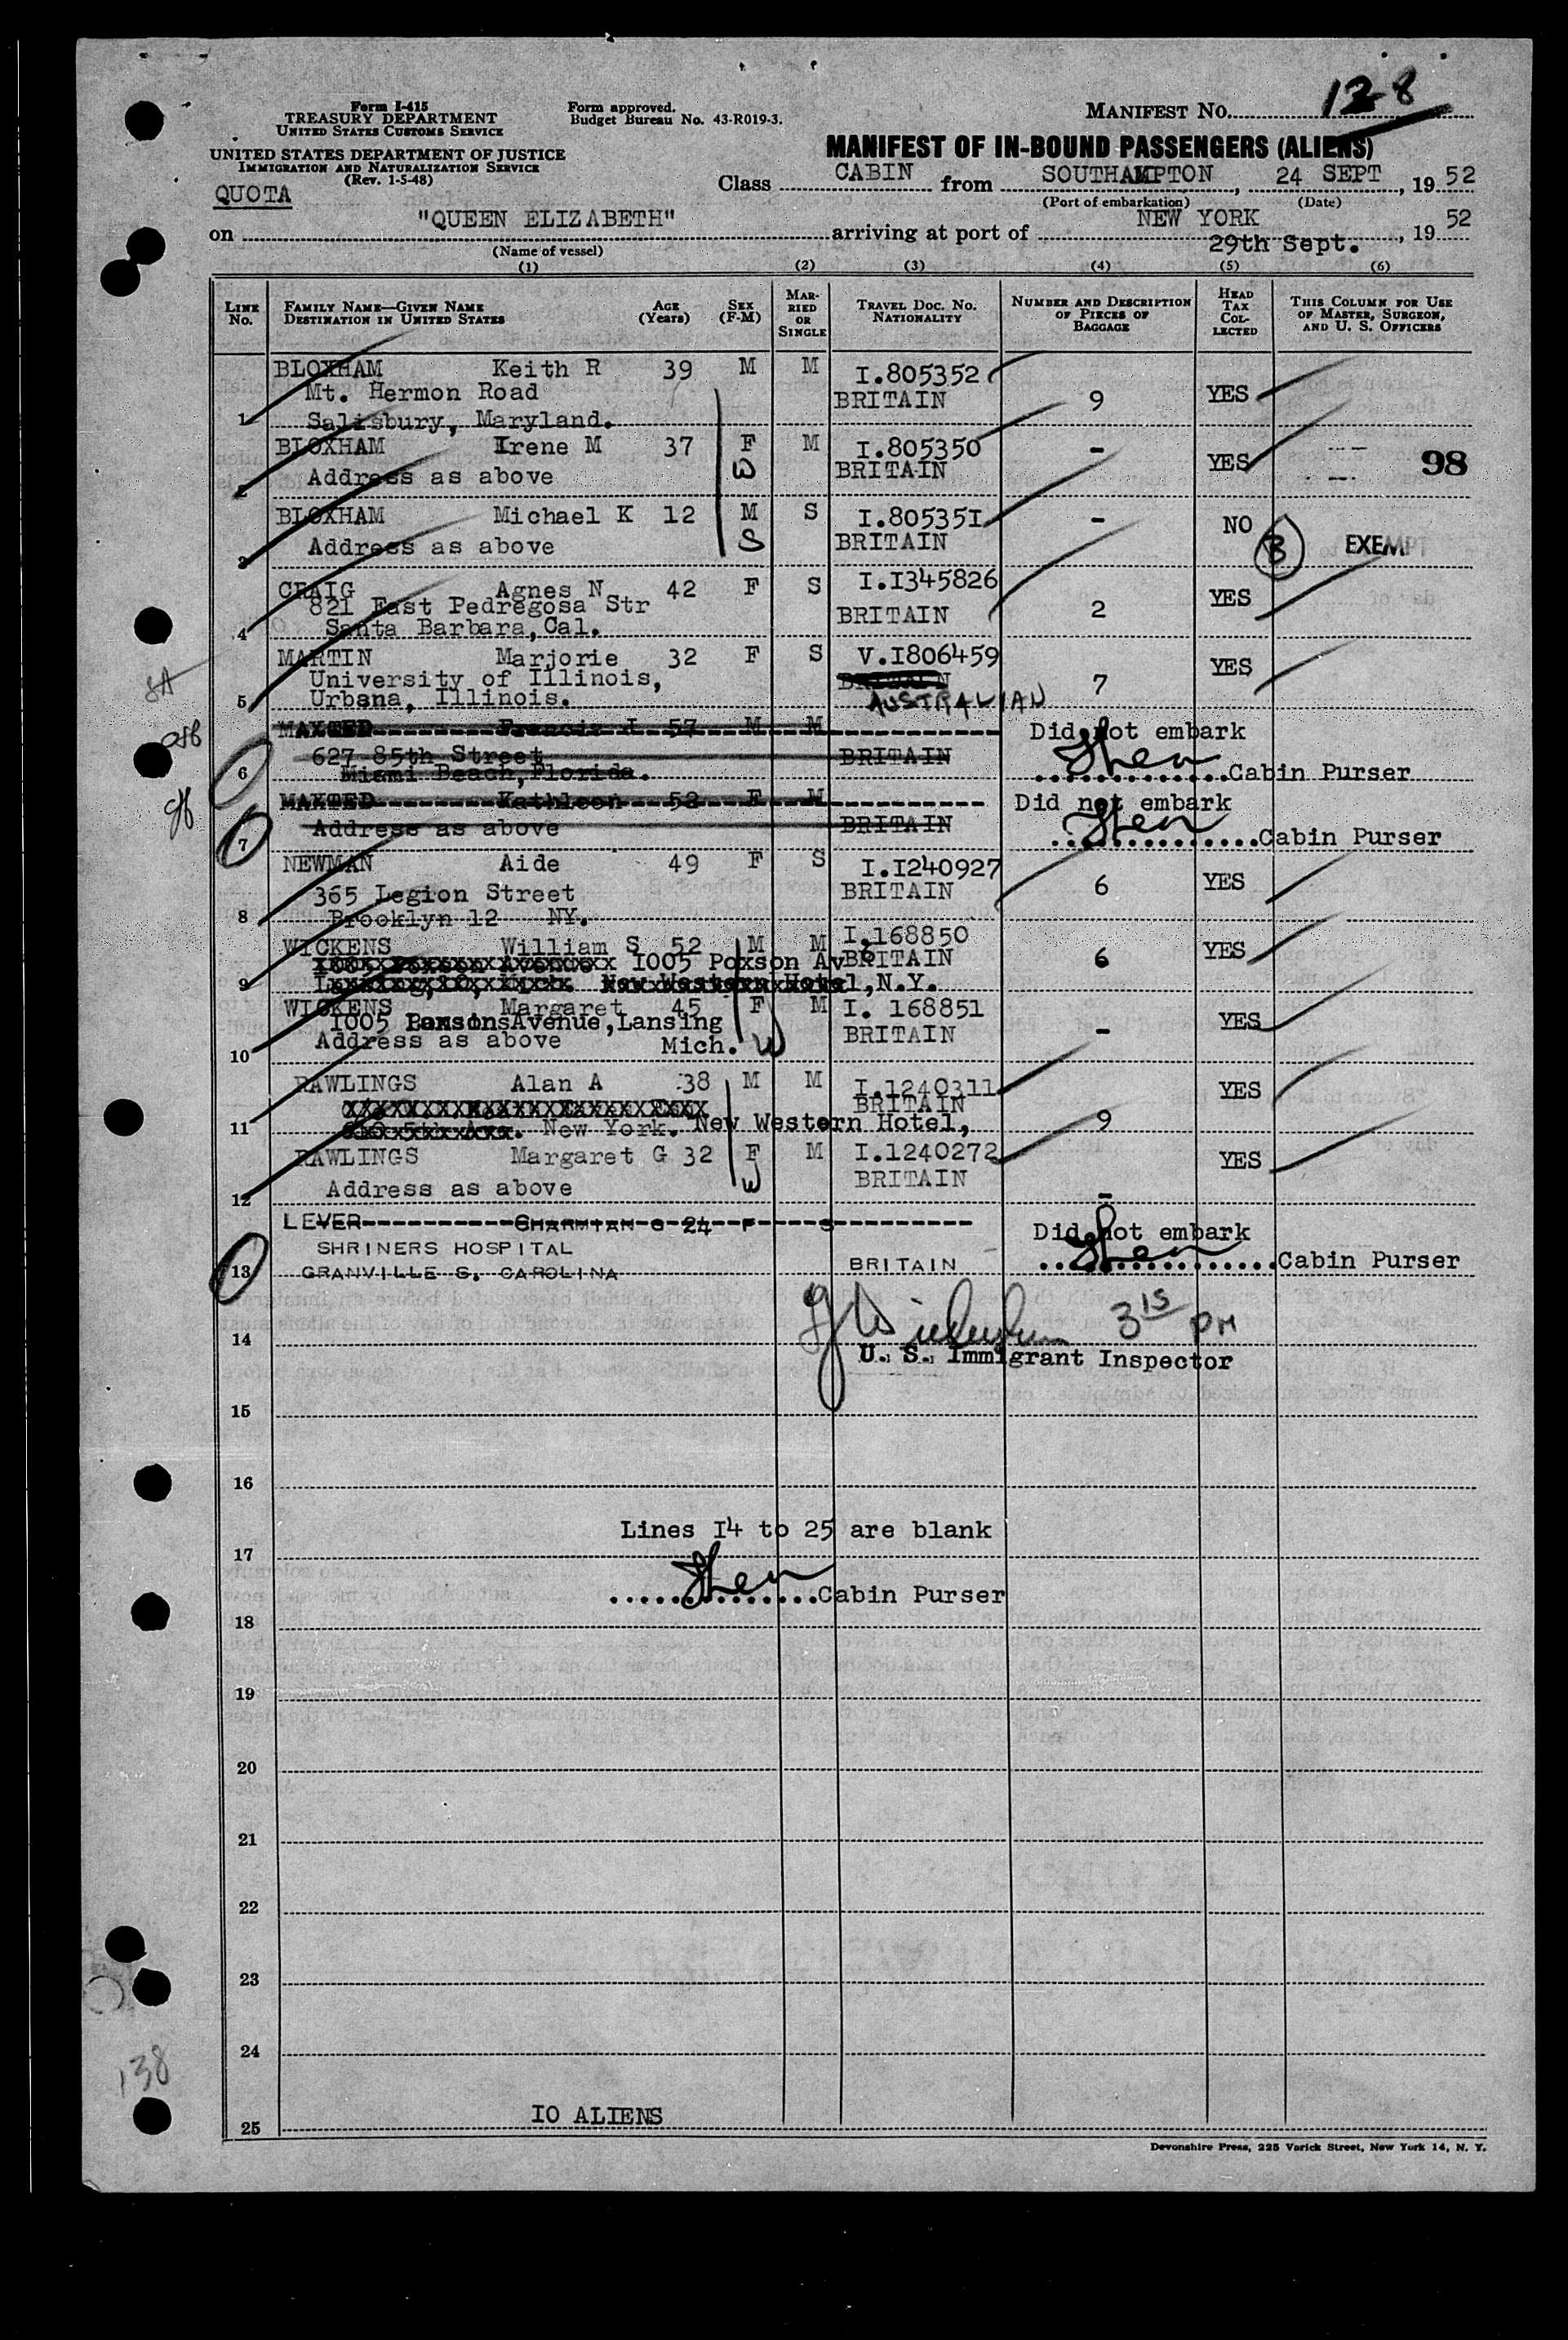 Form I-415
TREASURY DEPARTMENT
UNITED STATES CUSTOMS SERVICE
UNITED STATES DEPARTMENT OF JUSTICE
IMMIGRATION AND NATURALIZATION SERVICE
(Rev. 1-5-48)
QUOTA
Form approved.
Budget Bureau No. 43-R019-3.
MANIFEST NO. 128
MANIFEST OF IN-BOUND PASSENGERS (ALIENS)
Class CABIN from SOUTHAMPTON, 24 SEPT, 19 52
(Port of embarkation) (Date)
on "QUEEN ELIZABETH" arriving at port of NEW YORK 29th Sept., 19 52
(Name of vessel)
(1) (2) (3) (4) (5) (6)
LINE NO. FAMILY NAME—GIVEN NAME DESTINATION IN UNITED STATES AGE (YEARS) SEX (F-M) MARRIED OR SINGLE TRAVEL DOC. NO. NATIONALITY NUMBER AND DESCRIPTION OF PIECES OF BAGGAGE HEAD TAX COLLECTED THIS COLUMN FOR USE OF MASTER, SURGEON, AND U. S. OFFICERS
BLOXHAM Keith R 39 M M I.805352
Mt. Hermon Road BRITAIN 9 YES
1 Salisbury, Maryland.
BLOXHAM Irene M 37 F M I.805350 -
2 Address as above W BRITAIN YES 98
BLOXHAM Michael K 12 M S I.805351 - NO
3 Address as above S BRITAIN B EXEMPT
CRAIG Agnes N 42 F S I.I345826
821 East Pedregosa Str BRITAIN 2 YES
4 Santa Barbara, Cal.
MARTIN Marjorie 32 F S V.I806459 YES
University of Illinois, BRITAIN 7
5 Urbana, Illinois. AUSTRALIAN
MAXTED Francis J 57 M M Did not embark
627 85th Street BRITAIN
6 Miami Beach, Florida. Cabin Purser
MAXTED Kathleen 52 F M Did not embark
7 Address as above BRITAIN Cabin Purser
NEWMAN Aide 49 F S I.I240927
365 Legion Street BRITAIN 6 YES
8 Brooklyn 12 NY.
WICKENS William S 52 M M I.168850
I005 Poxson Av BRITAIN 6 YES
9 New Western Hotel, N.Y.
WICKENS Margaret 45 F M I. 168851
I005 Avenue, Lansing BRITAIN - YES
10 Address as above Mich. W
RAWLINGS Alan A 38 M M I.1240311 YES
BRITAIN
11 New York. New Western Hotel, 9
RAWLINGS Margaret G 32 F M I.1240272 YES
12 Address as above W BRITAIN -
LEVER CHARMIAN G 24 F S Did not embark
SHRINERS HOSPITAL BRITAIN
13 GRANVILLE S. CAROLINA Cabin Purser
14 3 15 PM
U. S. Immigrant Inspector
15
16
Lines I4 to 25 are blank
17
Cabin Purser
18
19
20
21
22
23
24
138
25 IO ALIENS
Devonshire Press, 225 Varick Street, New York 14, N. Y.